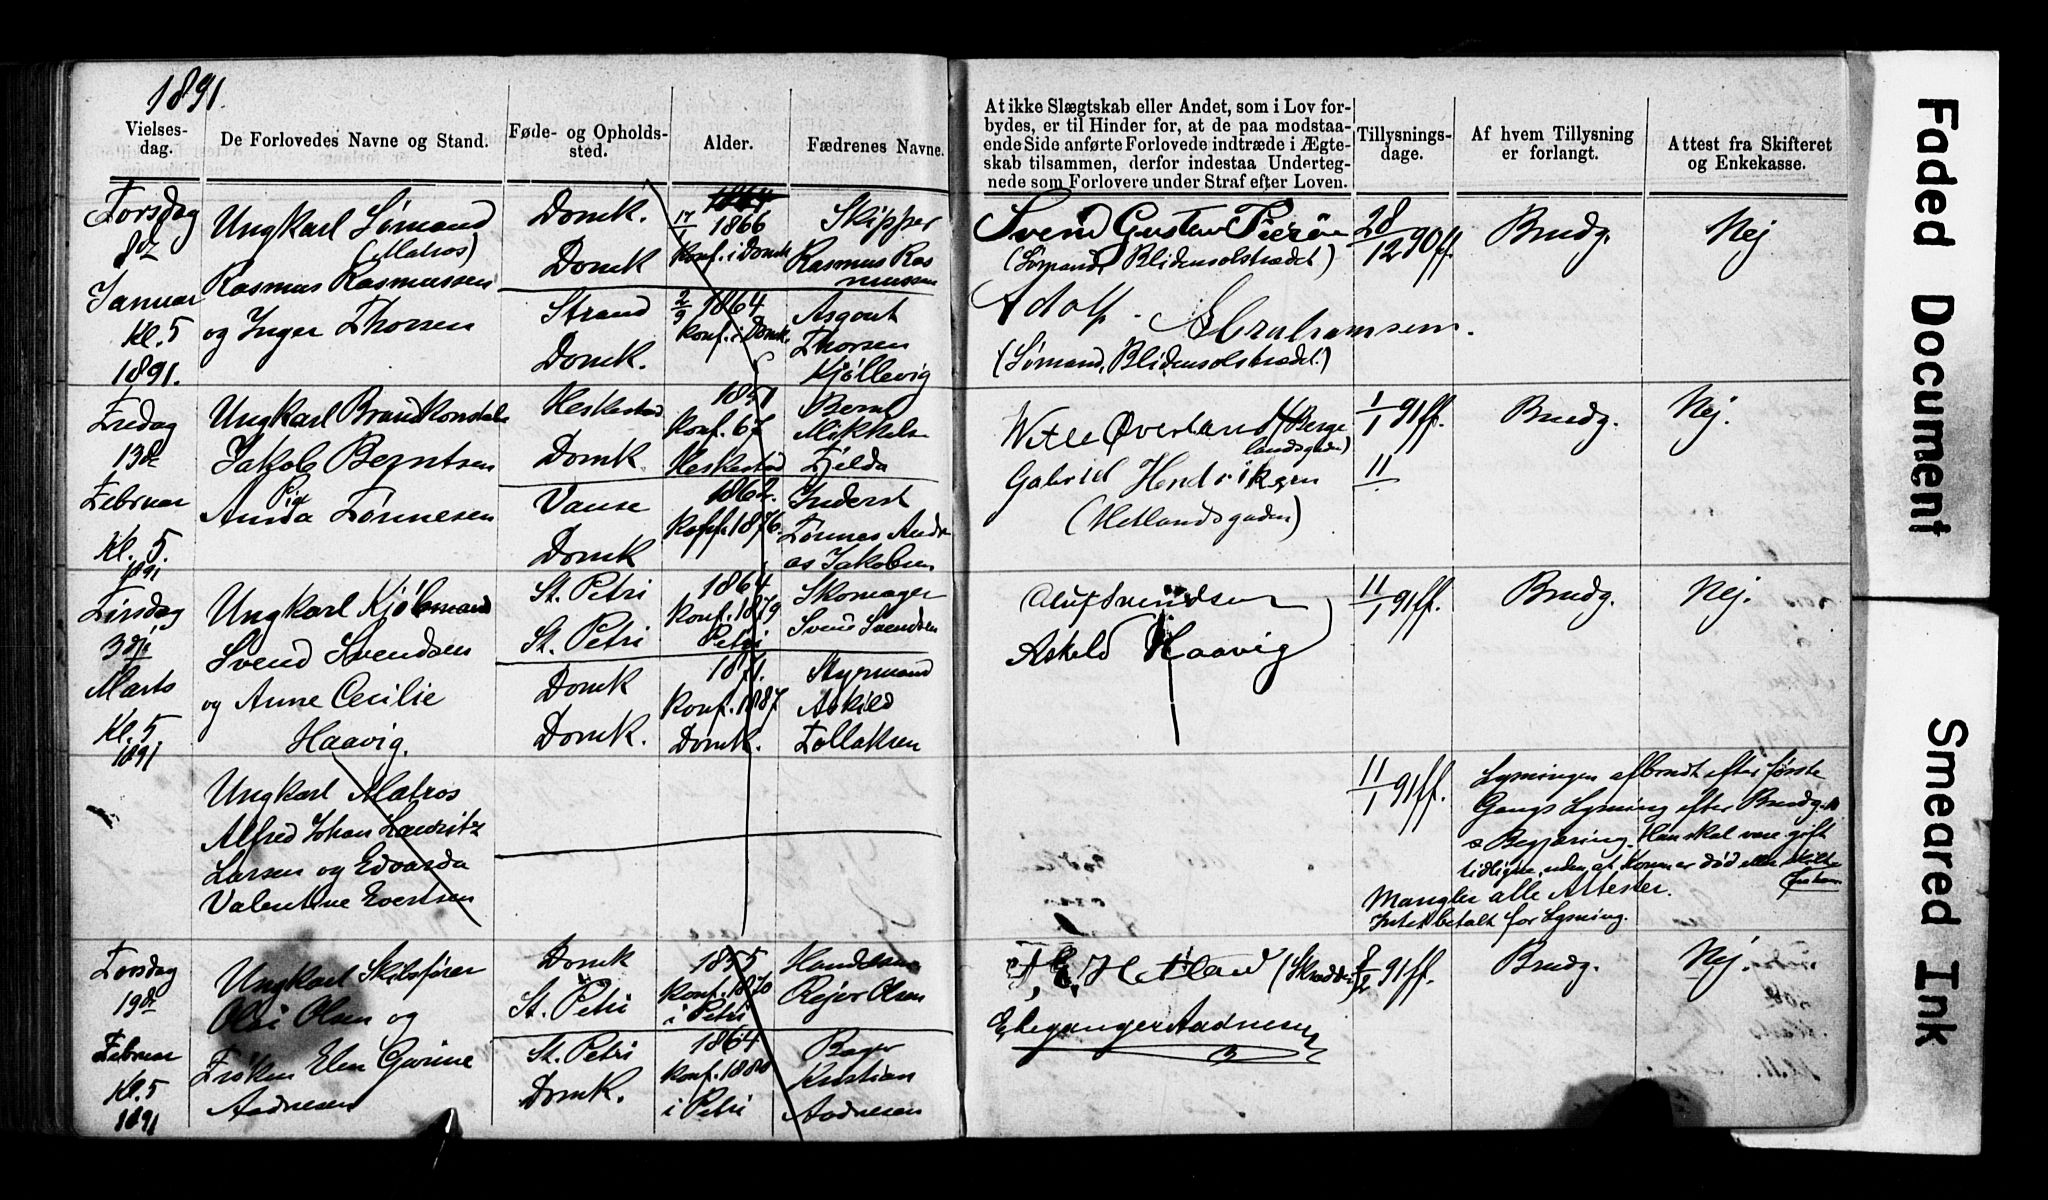 1891.
Vielses-
dag.
De Forlovedes Navne og Stand.
Føde- og Opholds-
sted.
Alder.
Fædrenes Navne.
At ikke Slægtskab eller Andet, som i Lov for-
bydes, er til Hinder for, at de paa modstaa-
ende Side anførte Forlovede indtræde i Ægte-
skab tilsammen, derfor indestaa Underteg-
nede som Forlovere under Straf efter Loven.
Tillysnings-
dage.
Af hvem Tillysning
er forlangt.
Attest fra Skifteret
og Enkekasse.
Torsdag
8de
Januar
Kl. 5
1891.
Ungkarl Sømand
(Matros)
Rasmus Rasmussen
og Inger Thorsen
Domk.
Domk
Strand
Domk.
17/1 1866
Konf. i Domk.
2/9 1864
Konf. i Domk.
Skipper
Rasmus Ras
mussen
Asgout
Thorsen
Kjøllevig
Svend Gustav
(Sømand, Blidensolstrædet)
Adolf Abrahamsen.
(Sømand, Blidensolstrædet.)
28/12 90 ff.
Brudg.
Nej
Fredag
13de
Februar
Kl. 5.
1891
Ungkarl Brandkonstabel
Jakob Berntsen
Pia
Anna Tønnesen
Heskestad
Domk
Vanse
Domk
1851
Konf. 67
Heskestad
1862.
Konf. 1876.
Bernt
Mikkels
Fjelda
Inderst
Tønnes Andre
as Jakobsen
Øverland (Berge
landsgaden)
Gabriel Hendriksen
(Hetlandsgaden)
1/1 91 ff.
11
Brudg.
Nej.
Tirsdag
3die
Marts
Kl. 5
1891
Ungkarl Kjøbmand
Svend Svendsen
og Anne Cecilie
Haavig.
St. Petri
St. Petri
Domk
Domk.
1864
Konf. 1879
Petri
1871.
Konf. 1887
Domk.
Skomager
Svend Svendsen
Styrmand
Askild
Tollaksen
Oluf Svendsen
Askild Haavig
11/1 91 ff.
Brudg.
Nej.
Ungkarl Matros
Alfred Johan Lauritz
Larsen og Edvarda
Valentine Evertsen
11/1 91 ff.
Lysningen afbrudt efter første
Gangs Lysning efter Brudg.
s Begjæring. Han skal være gift
tidligere, uden at Konen er død eller skilt
Mangler alle Attester.
Intet betalt for Lysning.
Torsdag
19de
Februar
Kl. 5
1891
Ungkarl Skibsfører
Olai Olsen og
Frøken Elen Gurine
Aadnesen
Domk
St. Petri
St. Petri
Domk.
1855
Konf. 1870
i Petri
1864
Konf. 1880
i Petri
Handelsm
Rejer Olsen
Bager
Kristian
Aadnesen
T. E. Hetland (Skrædder)
Aadnesen
8/2 91 ff.
Brudg.
Nej.
Faded Document
Smeared Ink